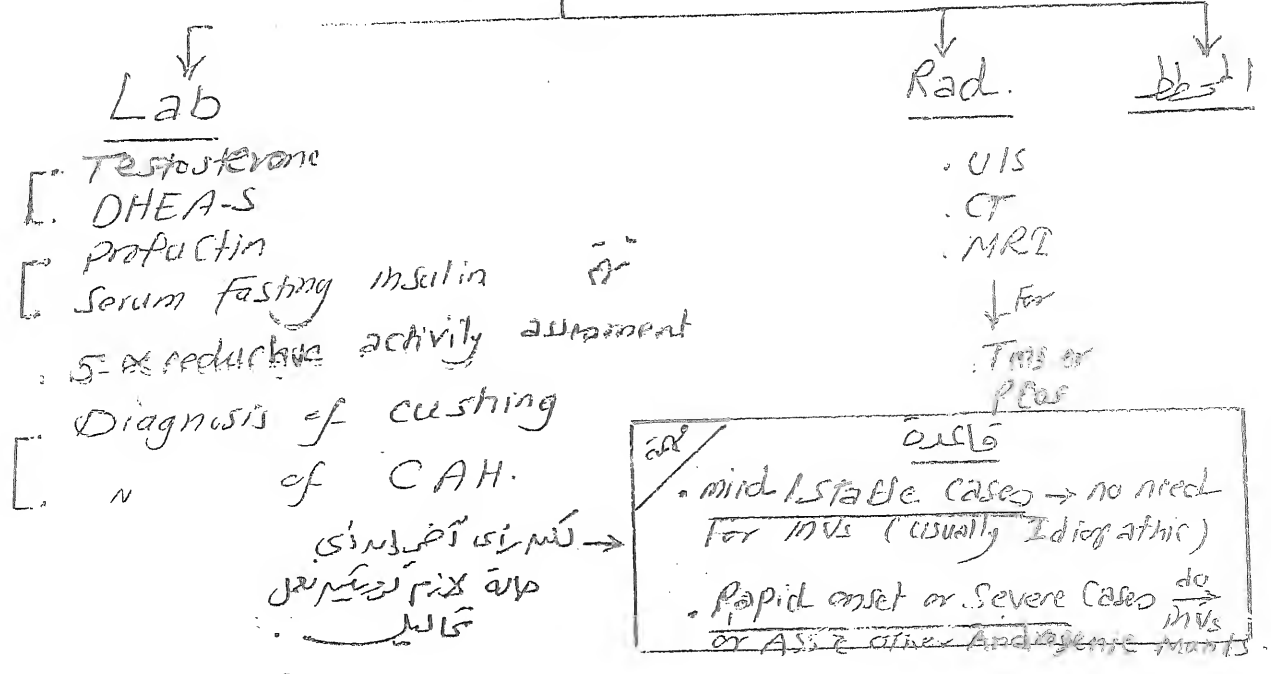 Lab
. Testosterone
. DHEA-S
. prolactin
. Serum fasting insulin
. 5-α reductase activity assessment
. Diagnosis of cushing
. " of CAH.
Rad.
. U/S
. CT
. MRI
↓ For
. Tms or
PCos
المخطط
قاعدة
. mild / stable cases → no need
For INVs (usually Idiopathic)
. Rapid onset or severe cases do INVs
or Ass. c̄ other Androgenic Manifs.
رأى آخر →
حالة لازم نعمل
تحاليل